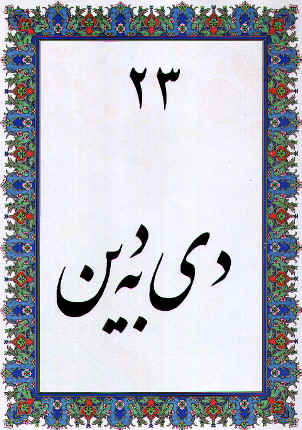 ۲۳
دی بَه دین